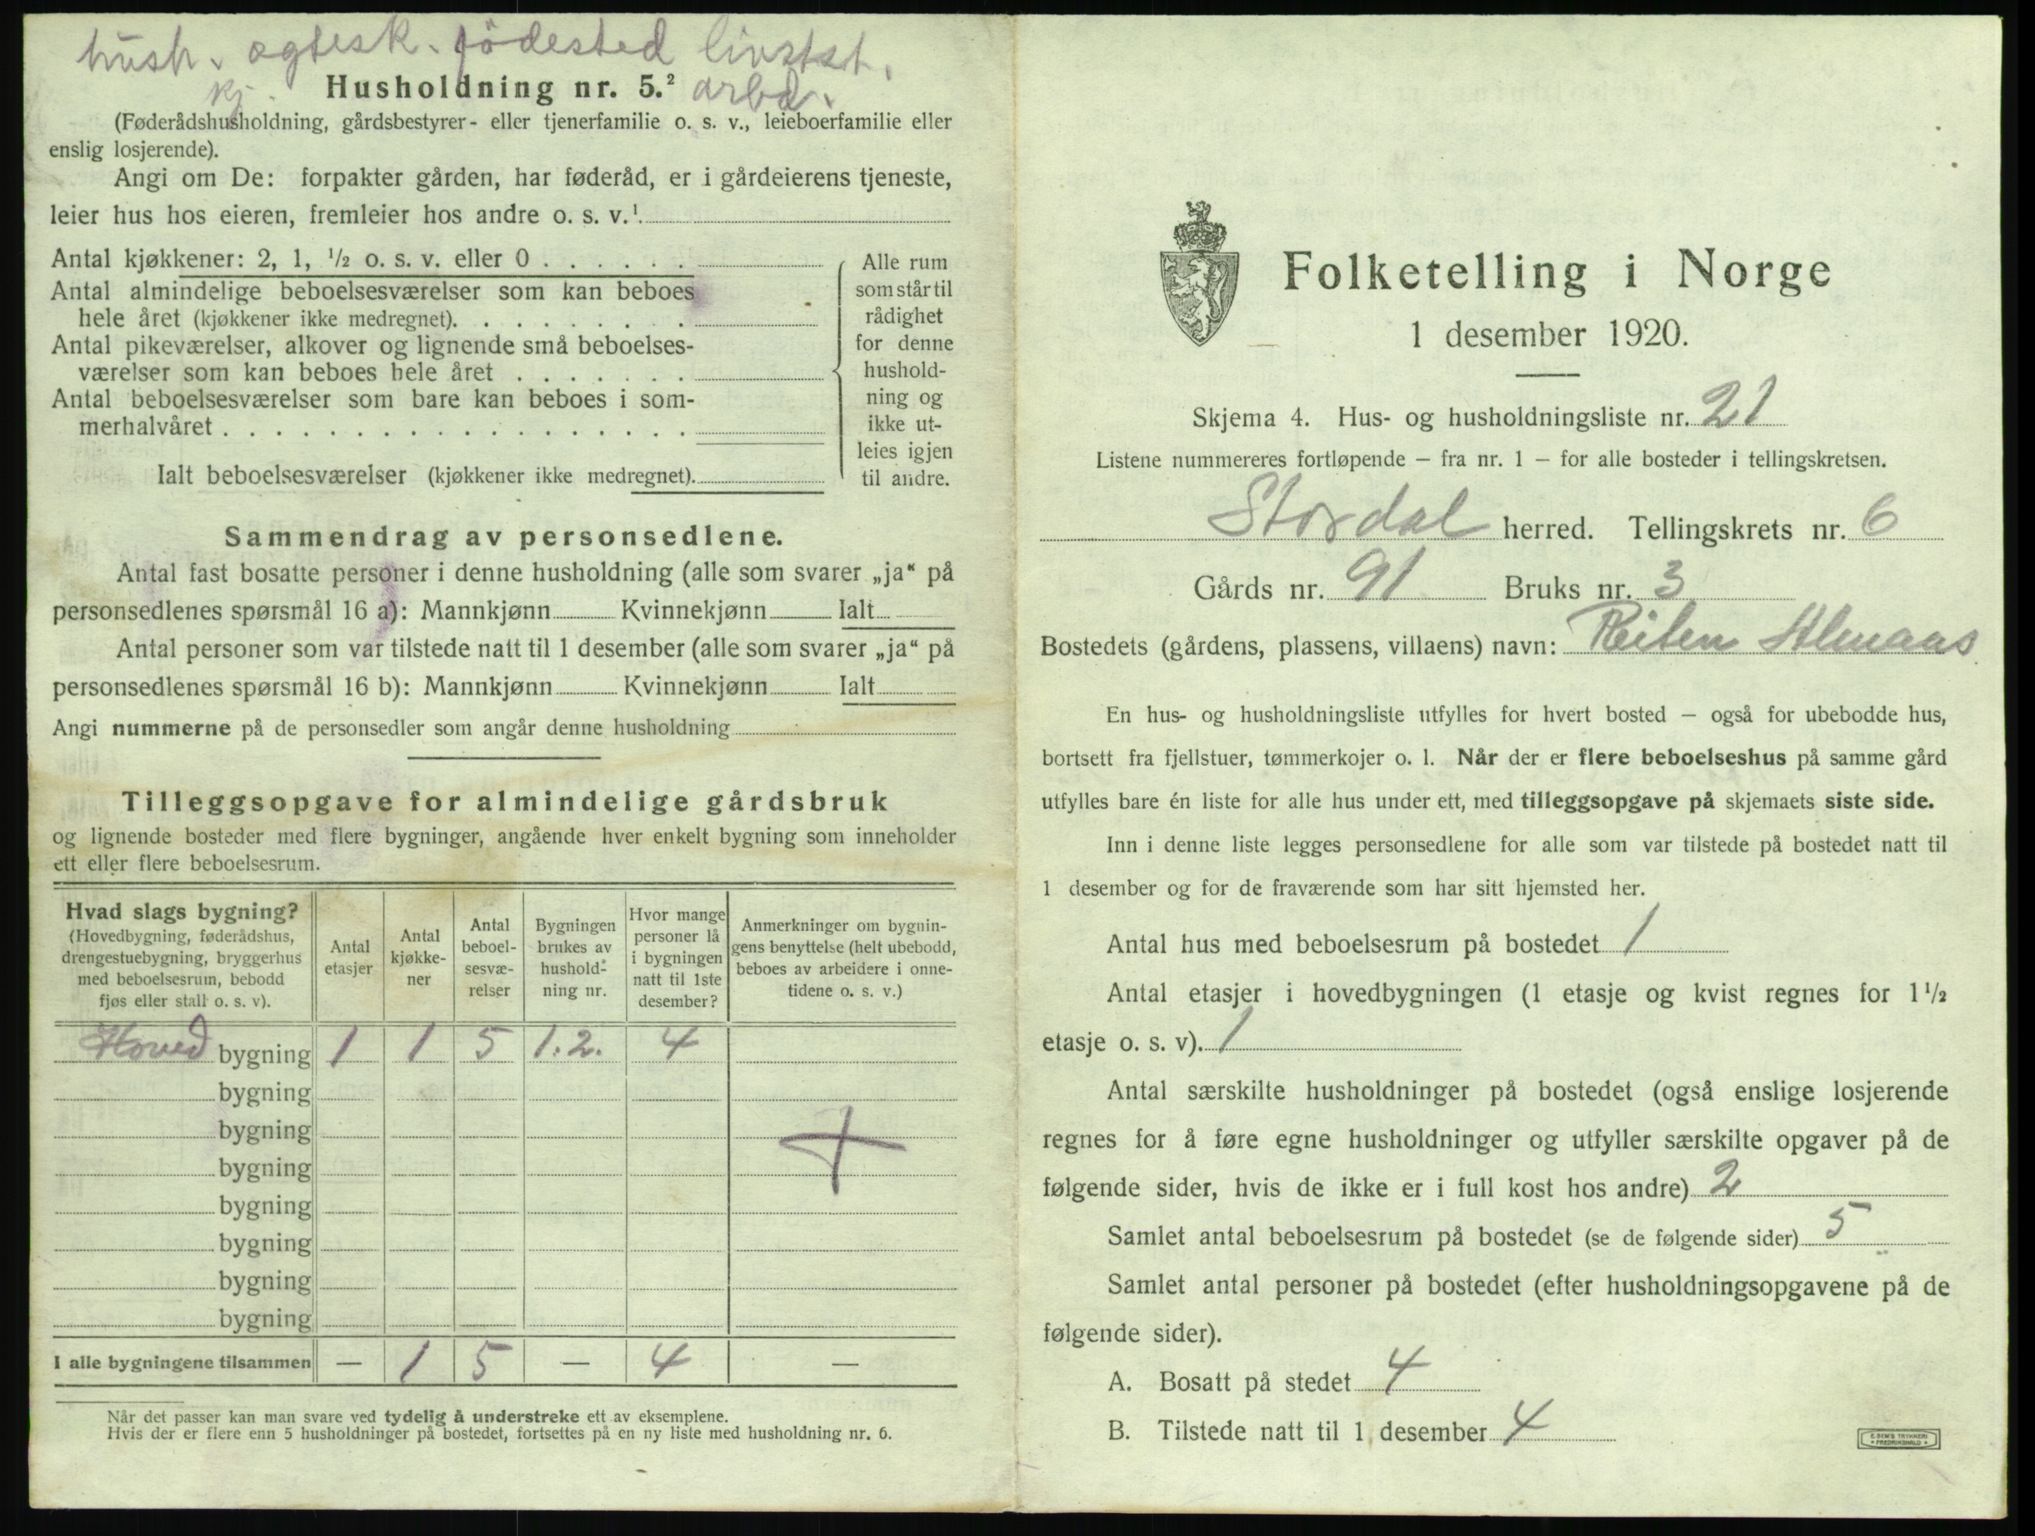 hush. ogtesk. fødested livsst.
kj. arbd.
Husholdning nr. 5.²
(Føderådshusholdning, gårdsbestyrer- eller tjenerfamilie o. s. v., leieboerfamilie eller
enslig losjerende).
Angi om De: forpakter gården, har føderåd, er i gårdeierens tjeneste,
leier hus hos eieren, fremleier hos andre o. s. v.¹
Antal kjøkkener: 2, 1, ½ o. s. v. eller 0 . . . . . .
Antal almindelige beboelsesværelser som kan beboes
hele året (kjøkkener ikke medregnet). . . . . . . . .
Antal pikeværelser, alkover og lignende små beboelses-
værelser som kan beboes hele året . . . . . . .
Antal beboelsesværelser som bare kan beboes i som-
merhalvåret . . . . . . . . . . . . . . . . . .
Ialt beboelsesværelser (kjøkkener ikke medregnet).
Alle rum
som står til
rådighet
for denne
hushold-
ning og
ikke ut-
leies igjen
til andre.
Sammendrag av personsedlene.
Antal fast bosatte personer i denne husholdning (alle som svarer „ja“ på
personsedlenes spørsmål 16 a): Mannkjønn Kvinnekjønn Ialt
Antal personer som var tilstede natt til 1 desember (alle som svarer „ja“ på
personsedlenes spørsmål 16 b): Mannkjønn Kvinnekjønn Ialt
Angi nummerne på de personsedler som angår denne husholdning
Tilleggsopgave for almindelige gårdsbruk
og lignende bosteder med flere bygninger, angående hver enkelt bygning som inneholder
ett eller flere beboelsesrum.
Hvad slags bygning?
(Hovedbygning, føderådshus,
drengestuebygning, bryggerhus
med beboelsesrum, bebodd
fjøs eller stall o. s. v).
Antal
etasjer
Antal
kjøkke-
ner
Antal
beboel-
sesvæ-
relser
Bygningen
brukes av
hushold-
ning nr.
Hvor mange
personer lå
i bygningen
natt til 1ste
desember?
Anmerkninger om bygnin-
gens benyttelse (helt ubebodd,
beboes av arbeidere i onne-
tidene o. s. v.)
Hoved bygning 1 1 5 1.2. 4
bygning
bygning
bygning
bygning
bygning
bygning
bygning
I alle bygningene tilsammen — 1 5 — 4 —
Når det passer kan man svare ved tydelig å understreke ett av eksemplene.
Hvis der er flere enn 5 husholdninger på bostedet, fortsettes på en ny liste med husholdning nr. 6.
Folketelling i Norge
1 desember 1920.
Skjema 4. Hus- og husholdningsliste nr. 21
Listene nummereres fortløpende — fra nr. 1 — for alle bosteder i tellingskretsen.
Stordal herred. Tellingskrets nr. 6
Gårds nr. 91 Bruks nr. 3
Bostedets (gårdens, plassens, villaens) navn: Reiten Almaas
En hus- og husholdningsliste utfylles for hvert bosted — også for ubebodde hus,
bortsett fra fjellstuer, tømmerkojer o. l. Når der er flere beboelseshus på samme gård
utfylles bare én liste for alle hus under ett, med tilleggsopgave på skjemaets siste side.
Inn i denne liste legges personsedlene for alle som var tilstede på bostedet natt til
1 desember og for de fraværende som har sitt hjemsted her.
Antal hus med beboelsesrum på bostedet 1
Antal etasjer i hovedbygningen (1 etasje og kvist regnes for 1½
etasje o. s. v). 1
Antal særskilte husholdninger på bostedet (også enslige losjerende
regnes for å føre egne husholdninger og utfyller særskilte opgaver på de
følgende sider, hvis de ikke er i full kost hos andre) 2
Samlet antal beboelsesrum på bostedet (se de følgende sider) 5
Samlet antal personer på bostedet (efter husholdningsopgavene på de
følgende sider).
A. Bosatt på stedet 4
B. Tilstede natt til 1 desember 4
E. SEM'S TRYKKERI
FREDRIKSHALD